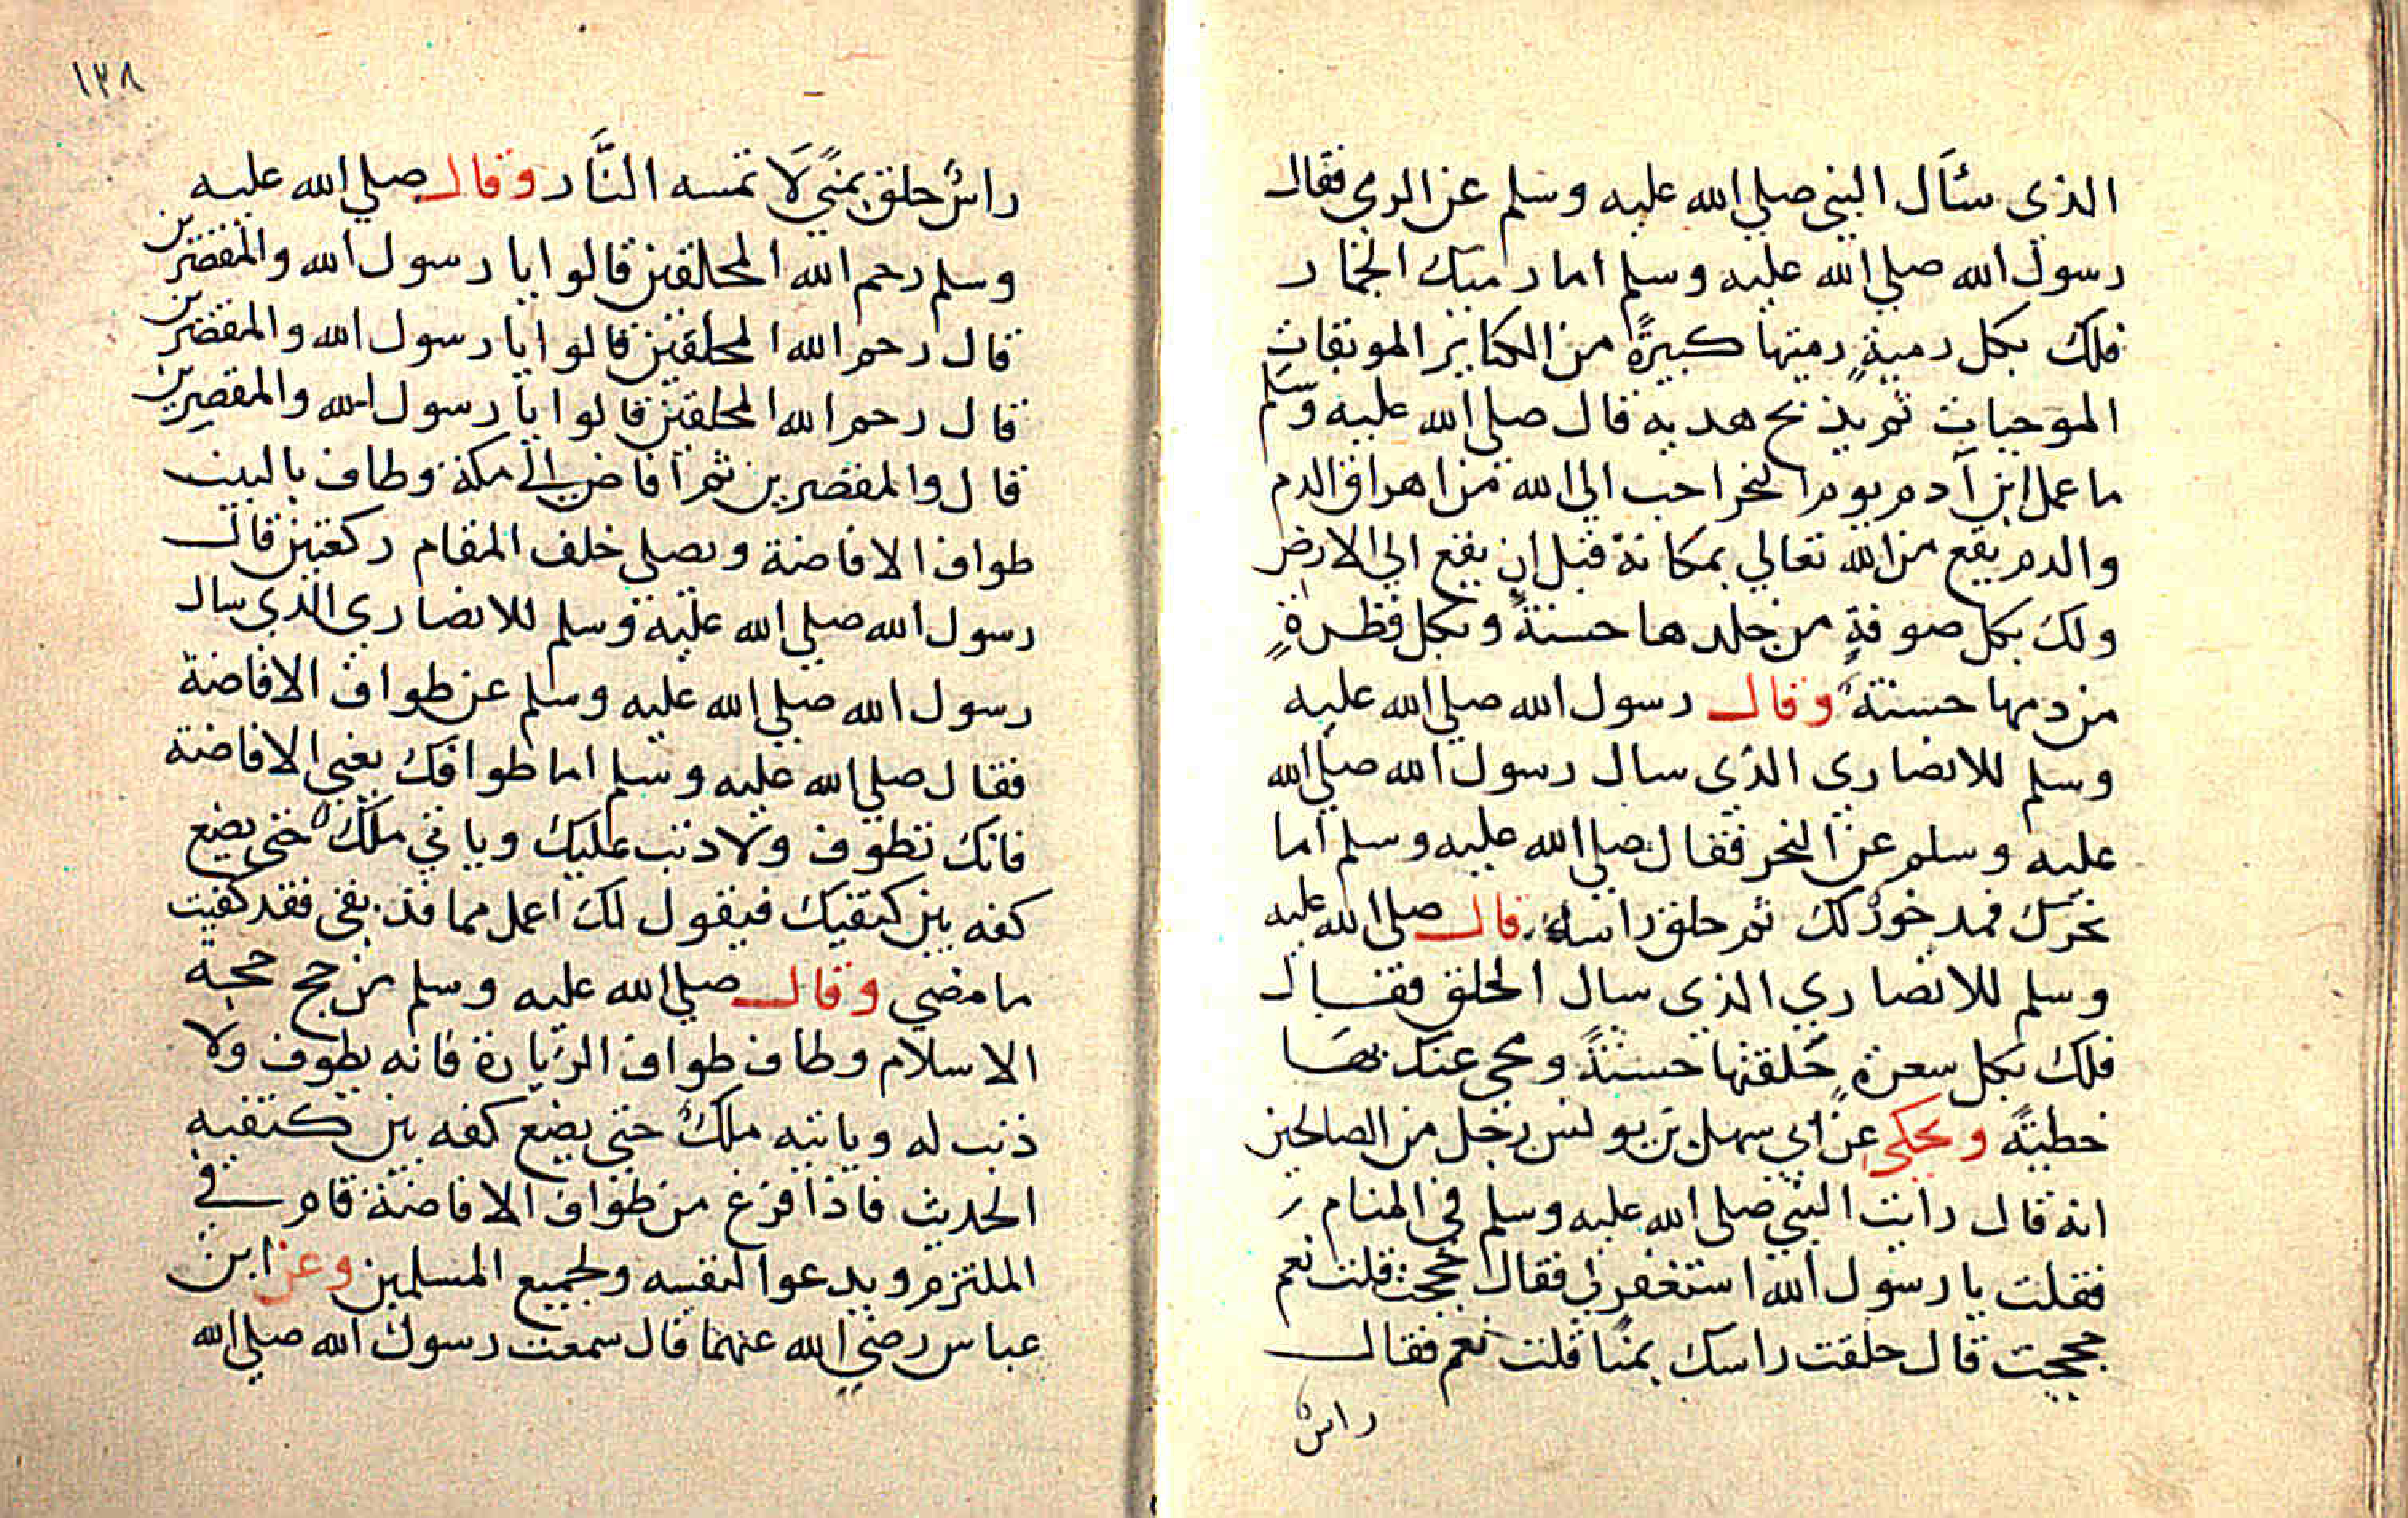 الذى سئال النبي صلي الله عليه وسلم عن الرمي فقال
رسول الله صلي الله عليه وسلم اما رميك الجمار
فلك بكل رميةٍ رميتها كبيرةً من الكباير الموبقات
الموجبات ثم يذبح هديه قال صلي الله عليه وسلم
ما عمل ابن آدم يوم النحر احب الي الله من اهراق الدم
والدم يقع من الله تعالي بمكانة قبل ان يقع الي الارض
ولك بكل صوفةٍ من جلدها حسنةً وبكل قطرةٍ
من دمها حسنة وقال رسول الله صلي الله عليه
وسلم للانصاري الذى سال رسول الله صلي الله
عليه وسلم عن النحر فقال صلي الله عليه وسلم اما
نحرك فمدخور لك ثم حلق راسه قال صلي الله عليه
وسلم للانصاري الذى سال الحلق فقال
فلك بكل سعرةٍ حلقتها حسنةً ومحي عنك بها
خطيةً ويحكى عن ابي سهل بن يونس رجل من الصالحين
انه قال رايت النبي صلي الله عليه وسلم في المنام
فقلت يا رسول الله استغفر لي فقال حججت قلت نعم
حججت قال حلقت راسك بمنا قلت نعم فقال
راس
١٣٨
راسٌ حلق بمنيً لَا تمسه النَّار وقال صلي الله عليه
وسلم رحم الله المحلقين قالوا يا رسول الله والمقصرين
قال رحم الله المحلقين قالوا يا رسول الله والمقصرين
قال رحم الله المحلقين قالوا يا رسول الله والمقصرين
قال والمقصرين ثم افاض الي مكة وطاف بالبيت
طواف الافاضة ويصلي خلف المقام ركعتين قال
رسول الله صلي الله عليه وسلم للانصاري الذي سال
رسول الله صلي الله عليه وسلم عن طواف الافاضة
فقال صلي الله عليه وسلم اما طوافك يعني الافاضة
فانك تطوف ولا ذنب عليك وياتي ملكٌ حتى يضع
كفه بين كتفيك فيقول لك اعمل مما قد بقى فقد كفيت
ما مضي وقال صلي الله عليه وسلم من حج حجة
الاسلام وطاف طواف الزيارة فانه يطوف ولا
ذنب له وياتيه ملكٌ حتى يضع كفه بين كتفيه
الحديث فاذا فرغ من طواف الافاضة قام في
الملتزم ويدعوا لنفسه ولجميع المسلمين وعن ابن
عباس رضي الله عنهما قال سمعت رسول الله صلي الله